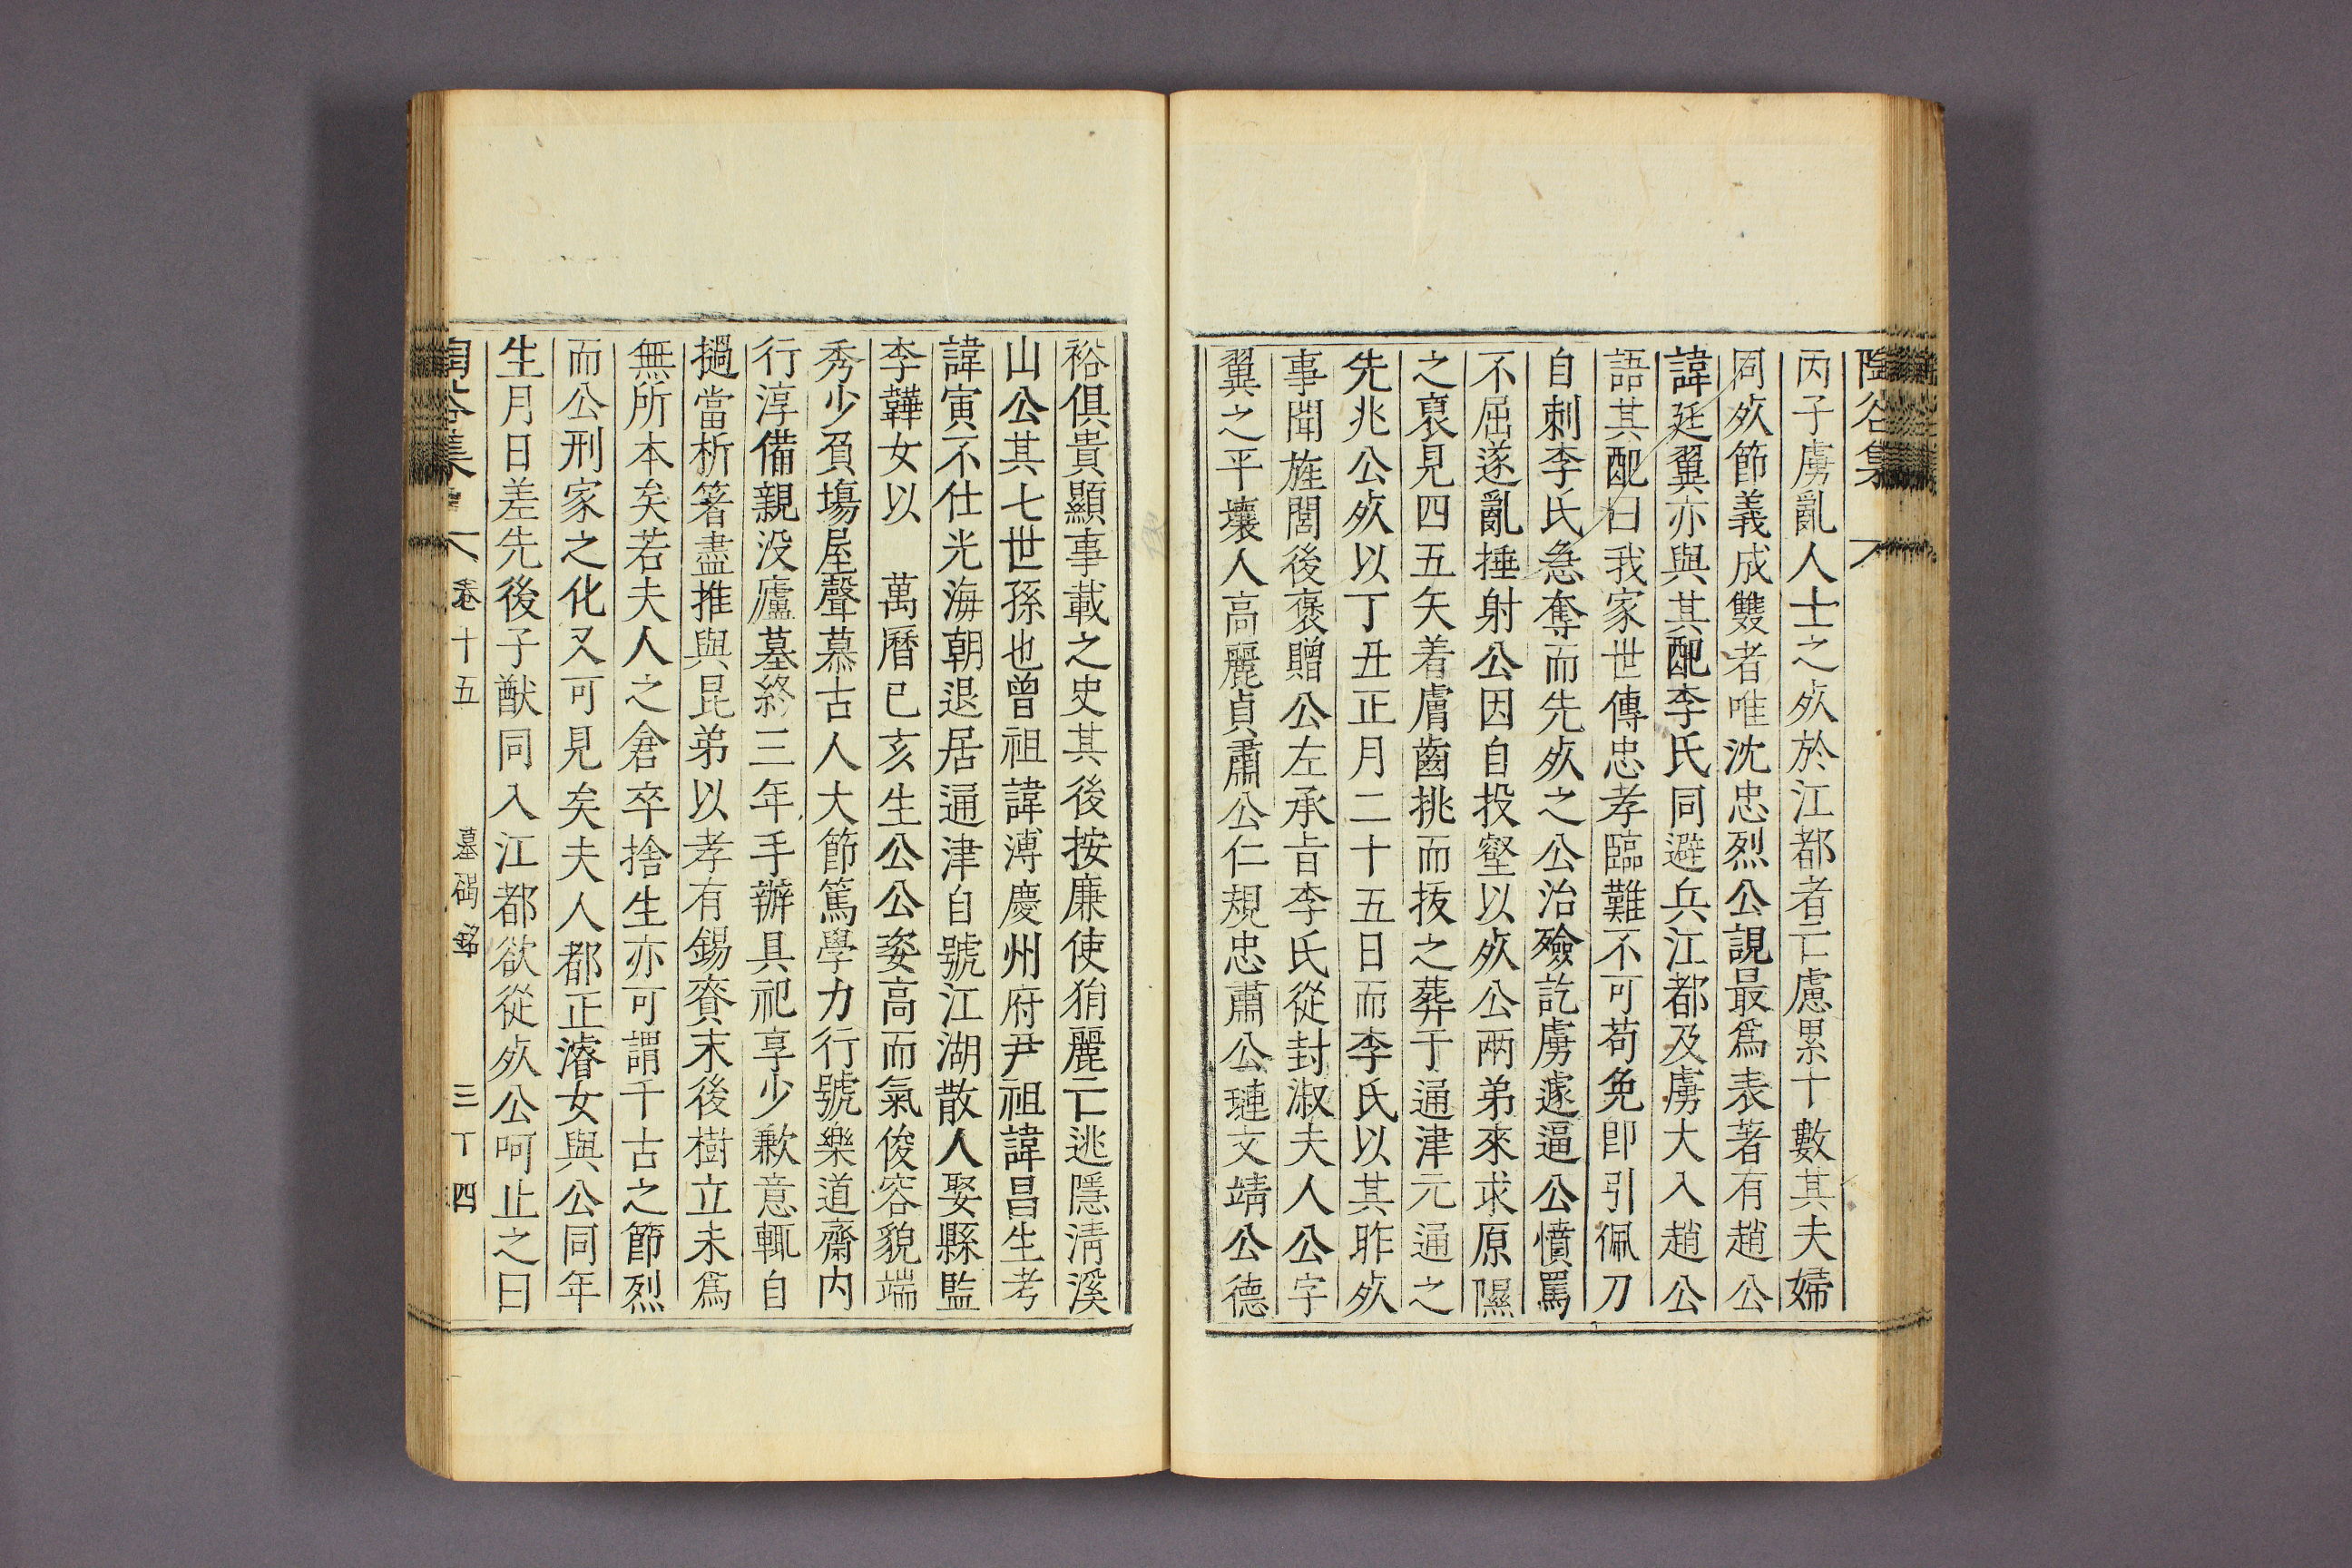 陶谷集
丙子虜亂人士之㱙於江都者亡慮累十數其夫婦
同㱙節義成雙者唯沈忠烈公誢最爲表著有趙公
諱廷翼亦與其配李氏同避兵江都及虜大入趙公
語其配曰我家世傳忠孝臨難不可苟免卽引佩刀
自刺李氏急奪而先㱙之公治殮訖虜遽逼公憤罵
不屈遂亂捶射公因自投壑以㱙公兩弟來求原隰
之裒見四五矢着膚齒挑而拔之葬于通津元通之
先兆公㱙以丁丑正月二十五日而李氏以其昨㱙
事聞旌閭後褒贈公左承旨李氏從封淑夫人公字
翼之平壤人高麗貞肅公仁規忠肅公璉文靖公德
裕俱貴顯事載之史其後按廉使狷麗亡逃隱淸溪
山公其七世孫也曾祖諱溥慶州府尹祖諱昌生考
諱寅不仕光海朝退居通津自號江湖散人娶縣監
李韡女以　萬曆己亥生公公姿高而氣俊容貌端
秀少負塲屋聲慕古人大節篤學力行號樂道齋內
行淳備親没廬墓終三年手辦具祀享少歉意輒自
撾當析箸盡推與昆弟以孝有錫賚末後樹立未爲
無所本矣若夫人之倉卒捨生亦可謂千古之節烈
而公刑家之化又可見矣夫人都正濬女與公同年
生月日差先後子猷同入江都欲從㱙公呵止之曰
陶谷集
卷十五
墓碣銘
三丁四